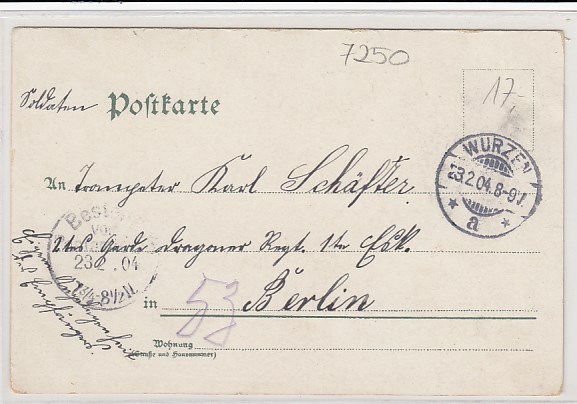 7250
Soldaten Postkarte
17,-
WURZEN
23.2.04.8-9V.
* a *
An Trompeter Karl Schäfter
Best
23.2.04
2tes Garde Dragoner Regt. 1te Esk.
in Berlin
53
Eigene Angelegenheit
des Empfängers.
Wohnung
(Straße und Hausnummer)